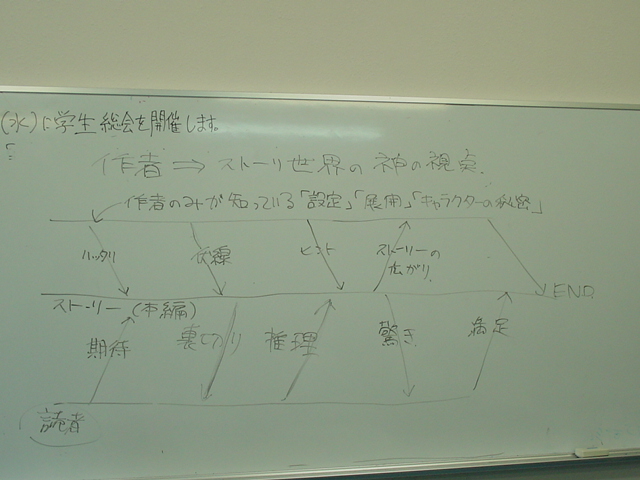 (水)に学生総会を開催します。
作者⇒ストーリ世界の神の視点.
作者のみが知っている「設定」「展開」「キャラクターの秘密」
ハッタリ
伏線
ヒント
ストーリーの
広がり
END
ストーリー(本編)
期待
裏切り
推理
驚き
満足
読者